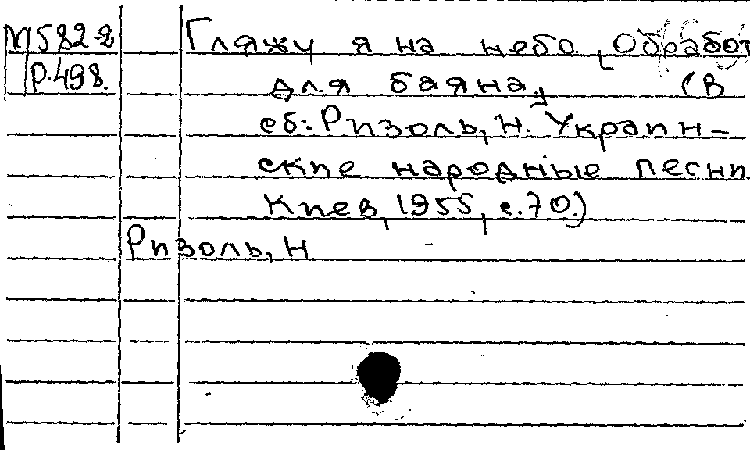 М582.2 Гляжу я на небо, Обработ
Р.498. для баяна, (В
сб: Ризоль, Н. Украин-
ские народные песни
Киев, 1955, с.70.)
Ризоль, Н